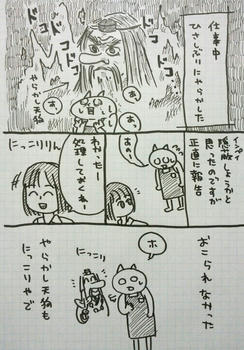 仕事中
ひさしぶりにやらかした
やらかし天狗
ドコ
ドコ
ドコ
ドコ
ホ、
ホ、
隠蔽しようかと
思ったのですが
正直に報告
わかったー
処理しておくねー
にっこりりん
おこられなかった
ホ
にっこり
やらかし天狗も
にっこりやで